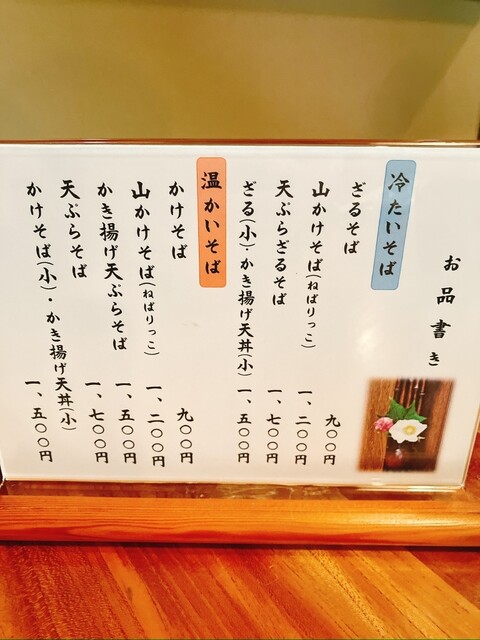 お品書き
冷たいそば
ざるそば 九〇〇円
山かけそば(ねばりっこ) 一、二〇〇円
天ぷらざるそば 一、七〇〇円
ざる(小)・かき揚げ天丼(小) 一、五〇〇円
温かいそば
かけそば 九〇〇円
山かけそば(ねばりっこ) 一、二〇〇円
かき揚げ天ぷらそば 一、五〇〇円
天ぷらそば 一、七〇〇円
かけそば(小)・かき揚げ天丼(小) 一、五〇〇円